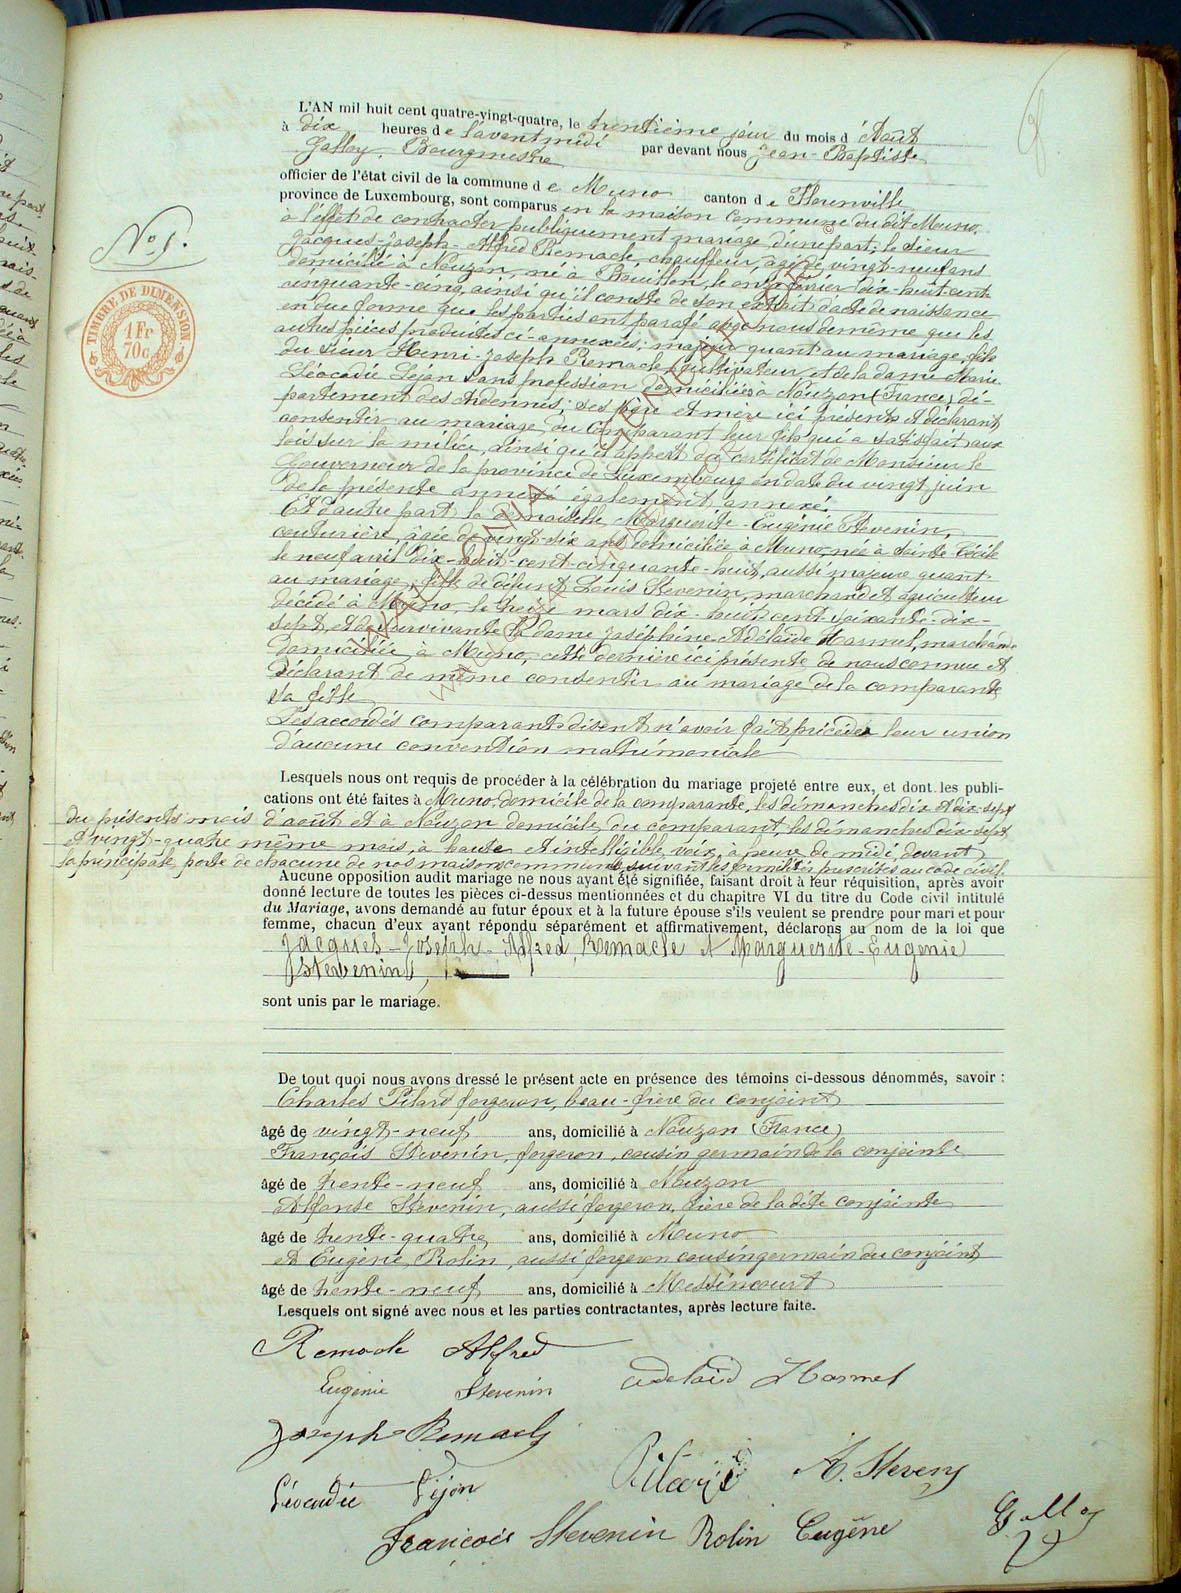 L'AN mil huit cent quatre-vingt-quatre, le trentième jour du mois d'Août
à dix heures de l'avant midi par devant nous Jean-Baptiste
Galloy, Bourgmestre
officier de l'état civil de la commune de Muno canton de Florenville
province de Luxembourg, sont comparus en la maison Commune du dit Muno,
à l'effet de contracter publiquement mariage, d'une part; le sieur
Jacques-Joseph-Alfred Remacle, chauffeur, âgé de vingt-neuf ans
domicilié à Nouzon, né à Bouillon, le onze février dix-huit-cent-
cinquante-cinq, ainsi qu'il conste de son extrait d'acte de naissance
en due forme que les parties ont parafé avec nous de même que les
autres pièces produites ci-annexées; majeur quant au mariage, fils
du sieur Henri-Joseph Remacle, cultivateur et de la dame Marie
Léocadie Lejon sans profession domiciliés à Nouzon (France) dé-
partement des Ardennes; ses père et mère ici présents et déclarant
consentir au mariage du Comparant leur fils qui a satisfait aux
lois sur la milice, ainsi qu'il appert du certificat de Monsieur le
Gouverneur de la province de Luxembourg en date du vingt juin
de la présente année également annexé.
Et d'autre part la demoiselle Marguerite-Eugénie Stevenin,
couturière, âgée de vingt-six ans domiciliée à Muno, née à Sainte Cécile
le neuf avril dix-huit-cent-cinquante-huit, aussi majeure quant
au mariage, fille de défunt Louis Stevenin, marchand et agriculteur
décédé à Muno, le treize mars dix-huit cent soixante-dix-
sept, et de survivante la dame Joséphine Adélaïde Harmel, marchande
domiciliée à Muno, cette dernière ici présente de nous connue et
déclarant de même consentir au mariage de la comparante
sa fille
Les accordés comparants disent n'avoir fait précéder leur union
d'aucune convention matrimoniale
Lesquels nous ont requis de procéder à la célébration du mariage projeté entre eux, et dont les publi-
cations ont été faites à Muno, domicile de la comparante, les dimanches dix et dix-sept
du présent mois d'août et à Nouzon domicile du comparant, les dimanches dix-sept
et vingt-quatre même mois, à haute et intelligible voix, à heure de midi, devant
la principale porte de chacune de nos maisons communes suivant les formalités prescrites au code civil.
Aucune opposition audit mariage ne nous ayant été signifiée, faisant droit à leur réquisition, après avoir
donné lecture de toutes les pièces ci-dessus mentionnées et du chapitre VI du titre du Code civil intitulé
du Mariage, avons demandé au futur époux et à la future épouse s'ils veulent se prendre pour mari et pour
femme, chacun d'eux ayant répondu séparément et affirmativement, déclarons au nom de la loi que
Jacques-Joseph-Alfred Remacle et Marguerite-Eugénie
Stevenin,
sont unis par le mariage.
De tout quoi nous avons dressé le présent acte en présence des témoins ci-dessous dénommés, savoir :
Charles Pilard forgeron, beau-frère du conjoint
âgé de vingt-neuf ans, domicilié à Nouzon (France)
François Stevenin, forgeron, cousin germain de la conjointe
âgé de trente-neuf ans, domicilié à Nouzon
Alfonse Stevenin, aussi forgeron, frère de la dite conjointe
âgé de trente-quatre ans, domicilié à Muno
et Eugène Rolin, aussi forgeron cousin germain du conjoint
âgé de trente-neuf ans, domicilié à Messincourt
Lesquels ont signé avec nous et les parties contractantes, après lecture faite.
Remacle Alfred
Eugénie Stevenin Adelaïd Harmel
Joseph Remacle
Pilard A. Steveny
Léocadie Lejon
François Stevenin Rolin Eugène Galloy
No 5.
TIMBRE DE DIMENSION
1 Fr
70c